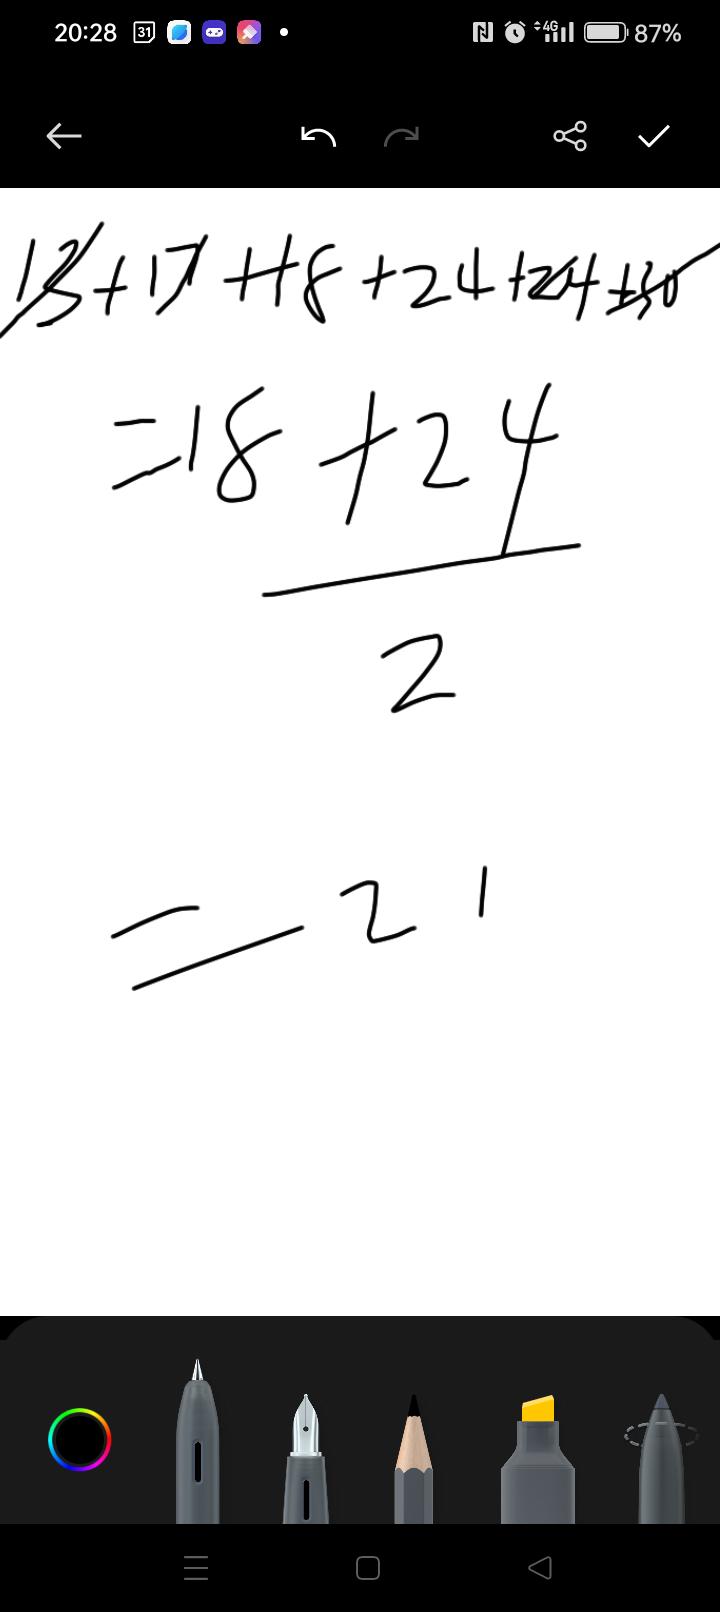 20:28 31 4G 87%
13+17+18+24+24+30
=18+24
2
=21